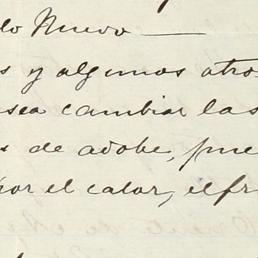 lo Nuevo —
s y algunos otro
sea cambiar las
s de adobe, pue
por el calor, el fr